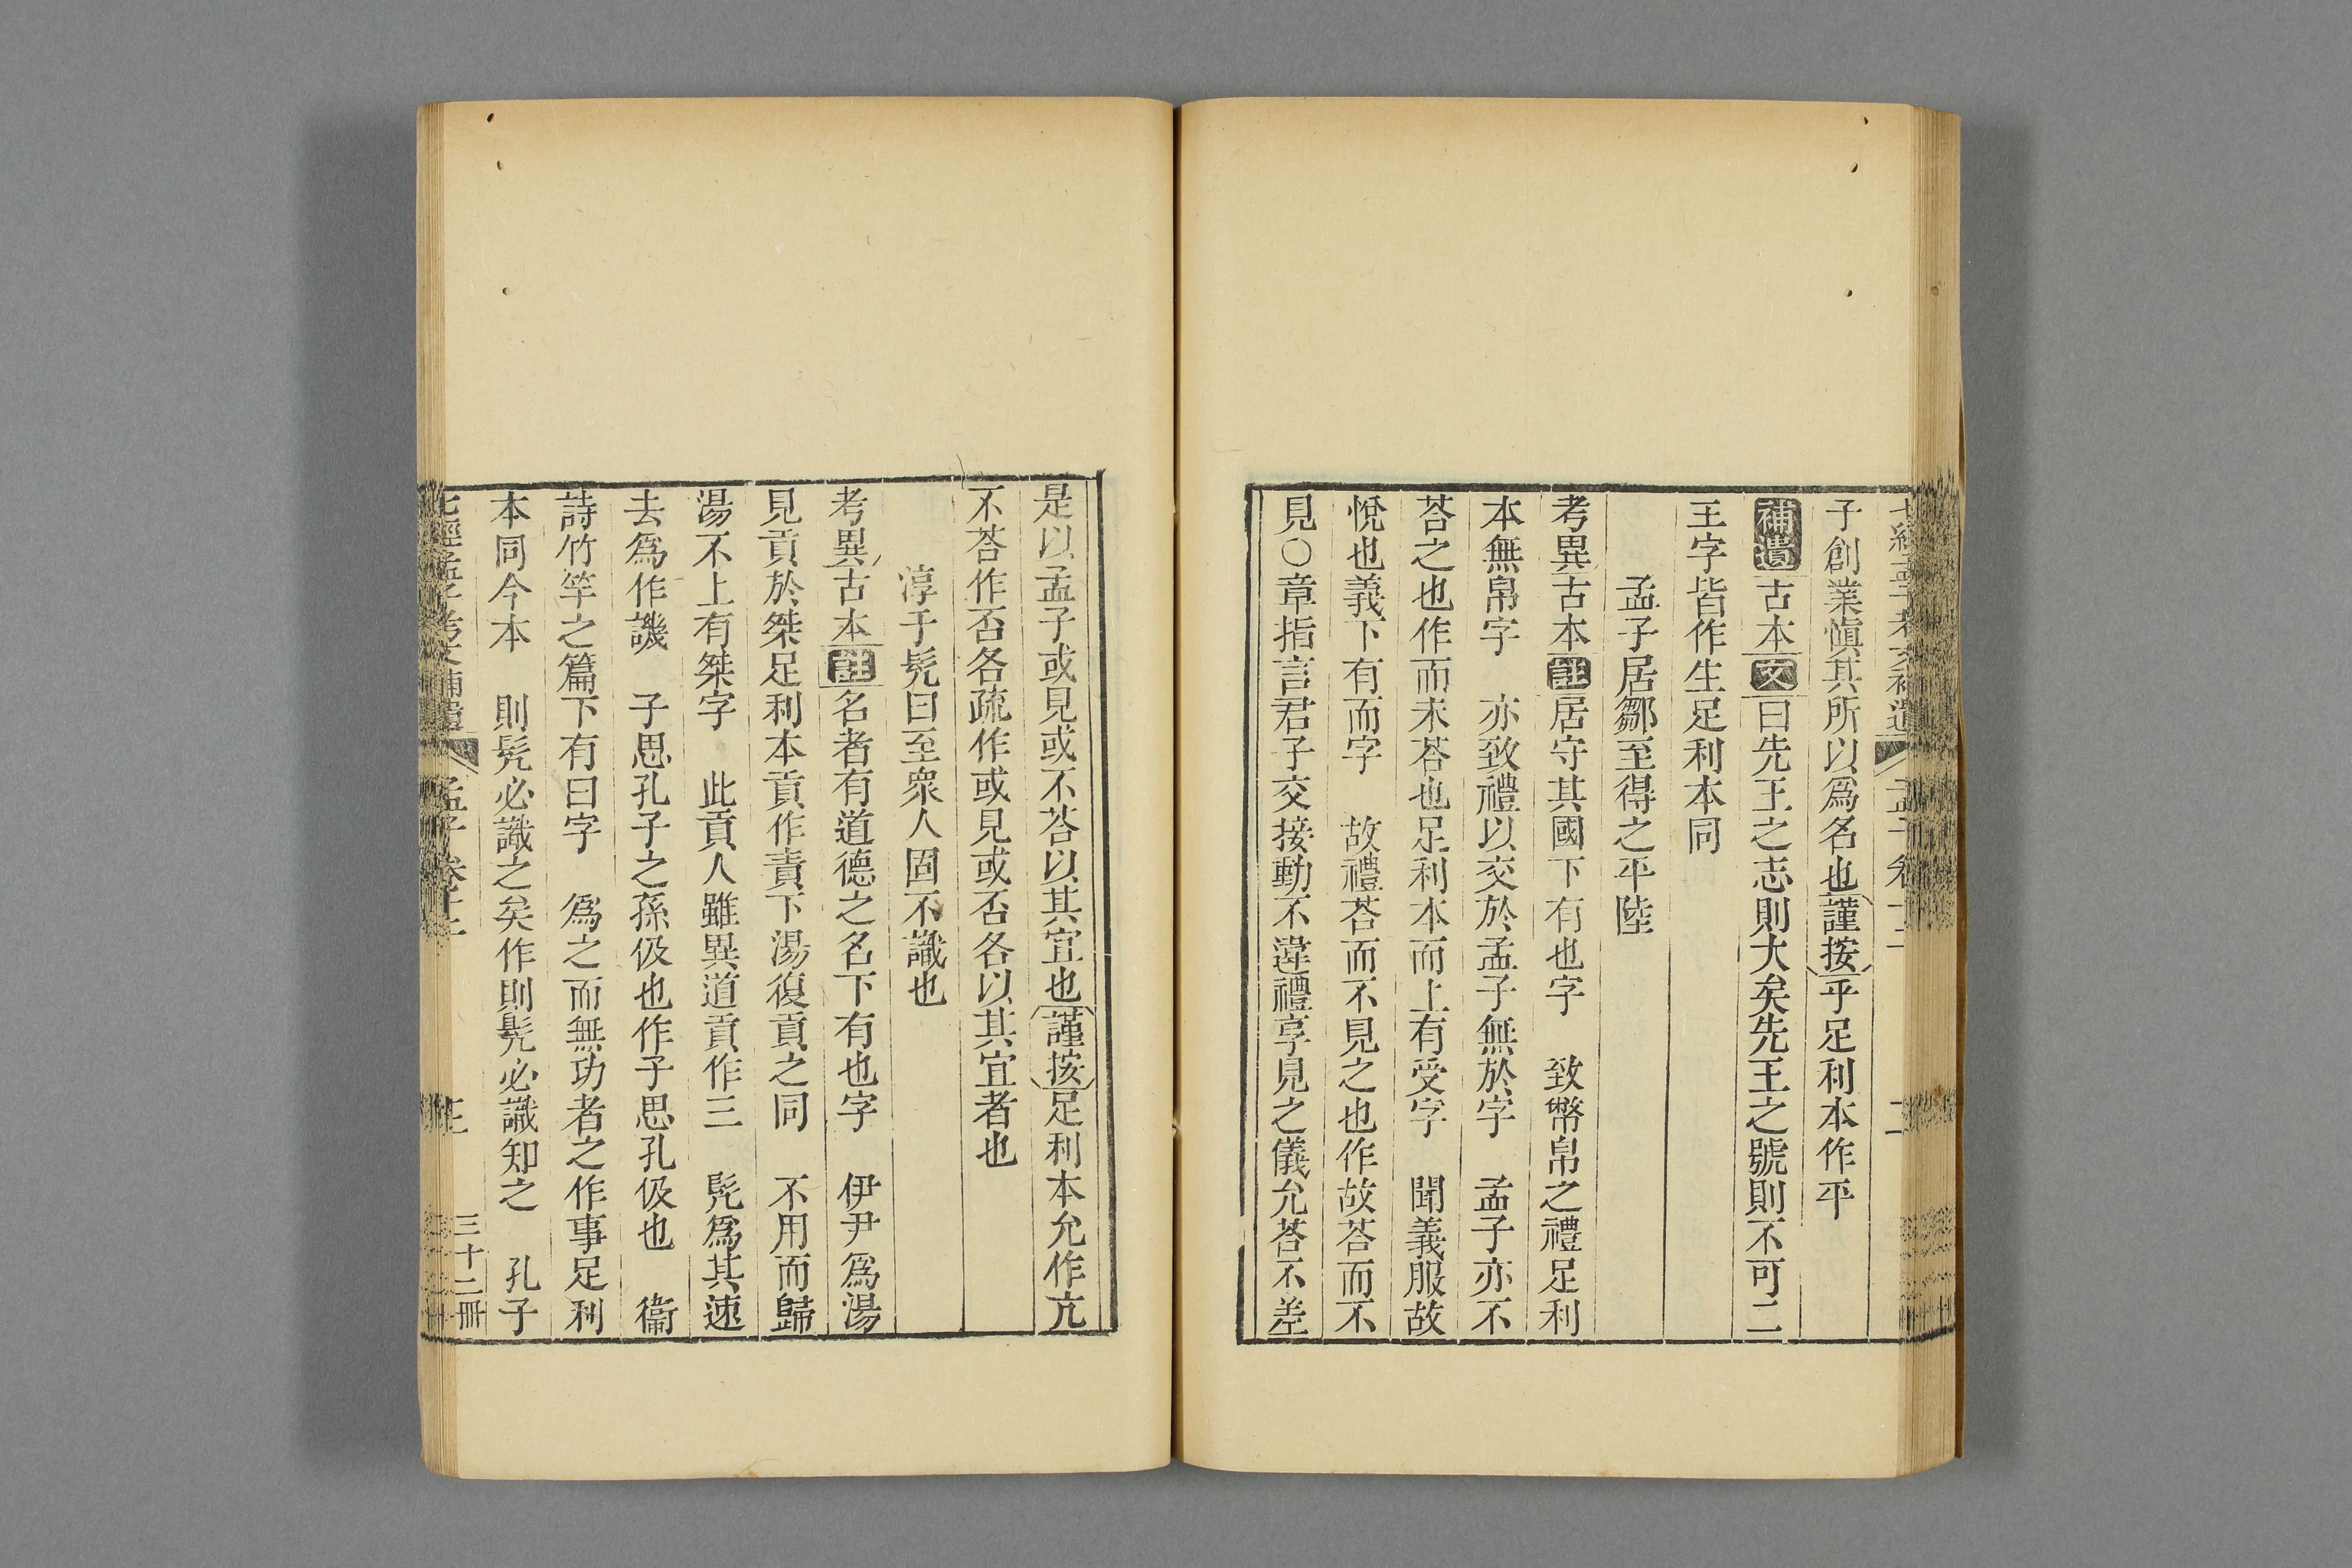 子創業愼其所以爲名也謹按乎足利本作平
補遺古本文曰先王之志則大矣先王之號則不可二
王字皆作生足利本同
孟子居鄒至得之平陸
考異古本註居守其國下有也字　致幣帛之禮足利
本無帛字　亦致禮以交於孟子無於字　孟子亦不
荅之也作而未荅也足利本而上有受字　聞義服故
悅也義下有而字　故禮荅而不見之也作故荅而不
見○章指言君子交接動不違禮享見之儀允荅不差
是以孟子或見或不荅以其宜也謹按足利本允作亢
不荅作否各疏作或見或否各以其宜者也
淳于髠曰至衆人固不識也
考異古本註名者有道德之名下有也字　伊尹爲湯
見貢於桀足利本貢作責下湯復貢之同　不用而歸
湯不上有桀字　此貢人雖異道貢作三　髠爲其速
去爲作譏　子思孔子之孫伋也作子思孔伋也　衞
詩竹竿之篇下有曰字　爲之而無功者之作事足利
本同今本　則髠必識之矣作則髠必識知之　孔子
七經孟子考文補遺　孟子卷十二　三十二冊